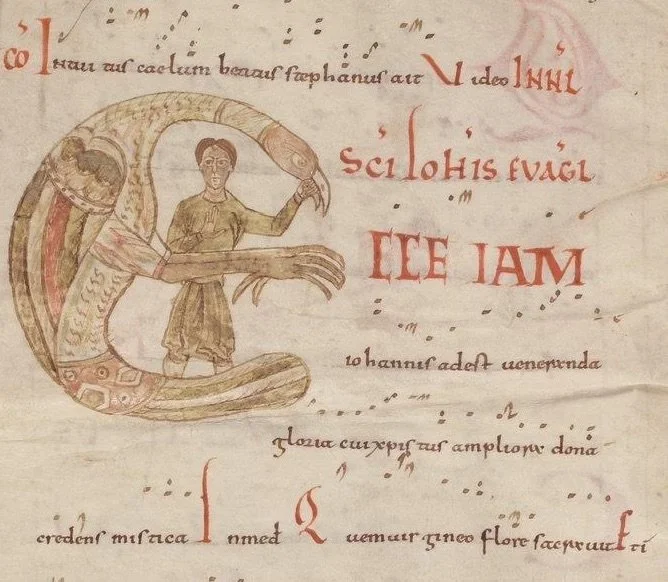 cō Intuitus caelum beatus stephanus ait Video IN NL
SCI IOHIS EVAGL
ECCE IAM
iohannis adest ueneranda
gloria cui xpistus ampliora dona
credens mistica In med Quem uirgineo flore sacrauit Et i